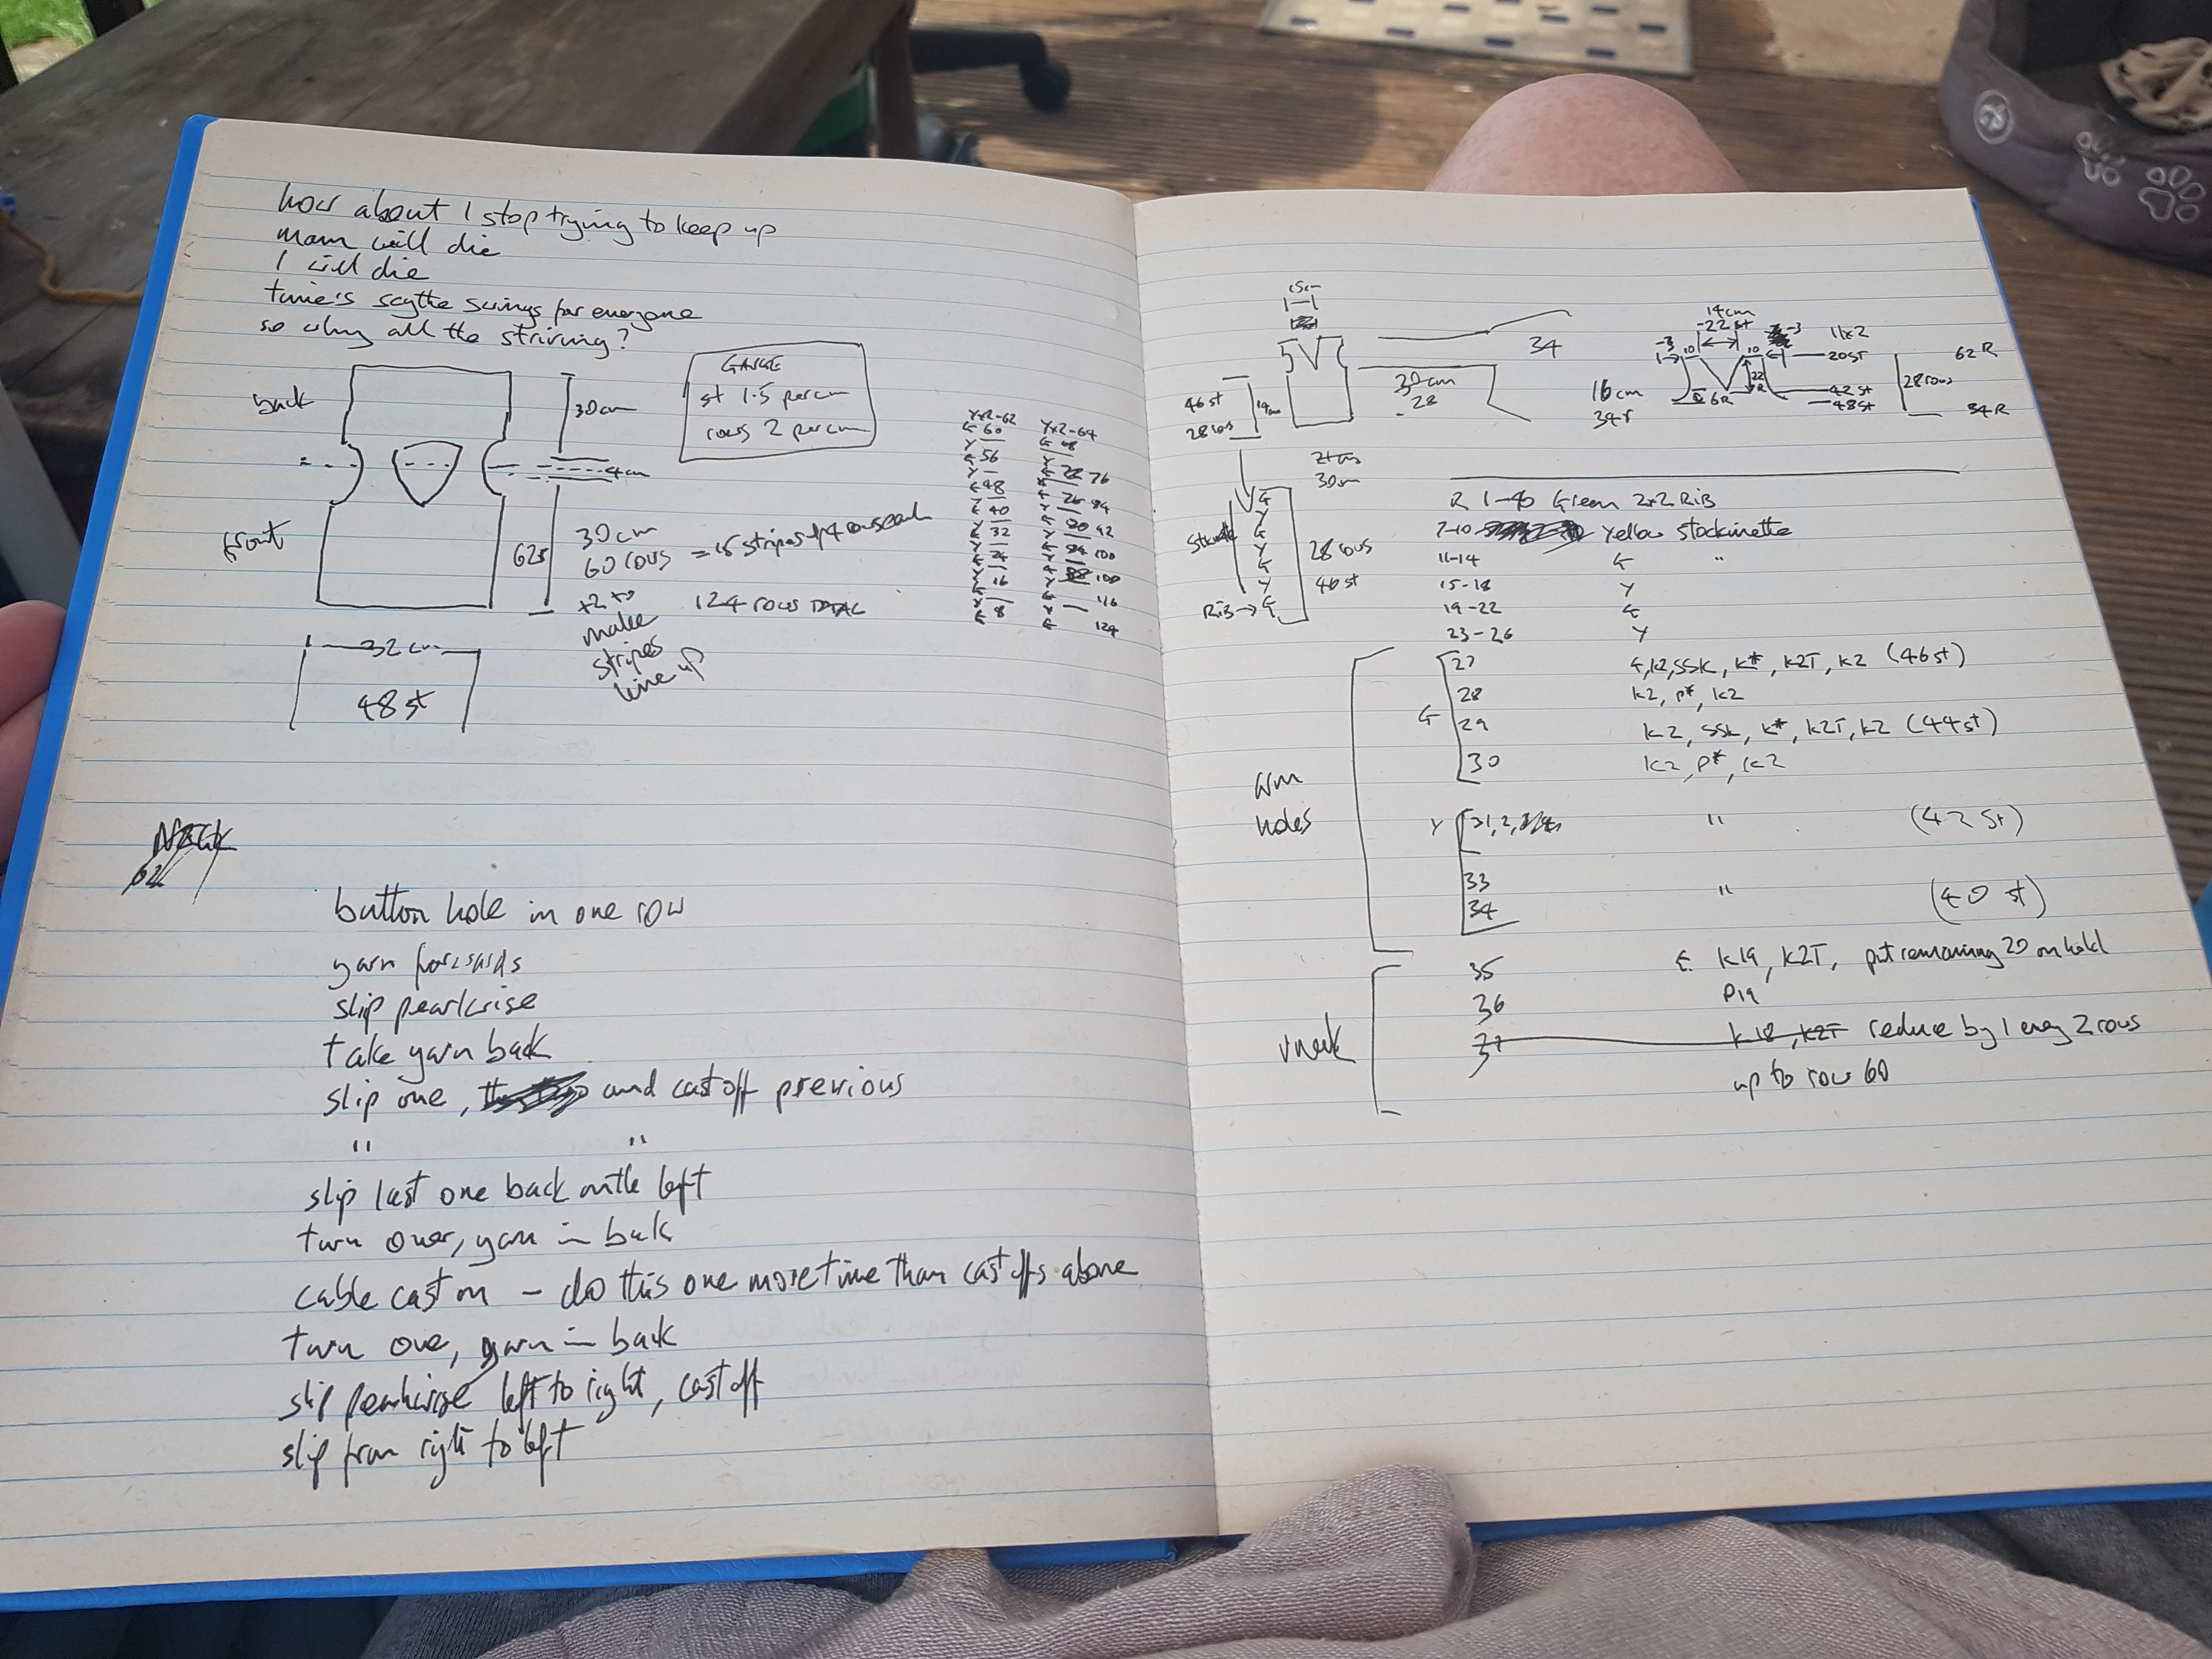 how about I stop trying to keep up
mam will die
I will die
time's scythe swings for everyone
so why all the striving?
GAUGE
st 1.5 per cm
rows 2 per cm
back
30cm
4cm
front
62r
30cm
60 rows = 15 stripes of 4 rows each
+2 to
make
stripes
line up
124 rows TOTAL
32cm
48 st
Yx2-62
G 60
Y
G 56
Y
G 48
Y 40
Y 32
Y 24
Y 16
Y
G 8
Yx2-64
G 68
Y
76
84
92
100
116
Y
G 124
button hole in one row
yarn forwards
slip pearlwise
take yarn back
slip one, and cast off previous
" "
slip last one back onto left
turn over, yarn in back
cable cast on - do this one more time than cast offs above
turn over, yarn in back
slip pearlwise left to right, cast off
slip from right to left
15cm
34
30cm
28
46 st
28 rows
14cm
14cm
-22 st
-3
10
10
-3
11x2
20st
62 R
22
R
16cm
34r
6R
42 st
48 st
28 rows
34 R
30cm
G
Y
G
Y
G
Y
Rib → G
28 rows
46 st
R 1-40 Green 2x2 RIB
7-10 Yellow stockinette
11-14 G "
15-18 Y
19-22 G
23-26 Y
arm
holes
G
27 G, k2, SSK, k*, k2T, k2 (46st)
28 k2, p*, k2
29 k2, SSK, k*, k2T, k2 (44st)
30 k2, p*, k2
Y 31, 2, " (42 st)
33 " (40 st)
34
vneck
35 G. k19, k2T, put remaining 20 on hold
36 P19
37 k18, k2T reduce by 1 every 2 rows
up to row 60